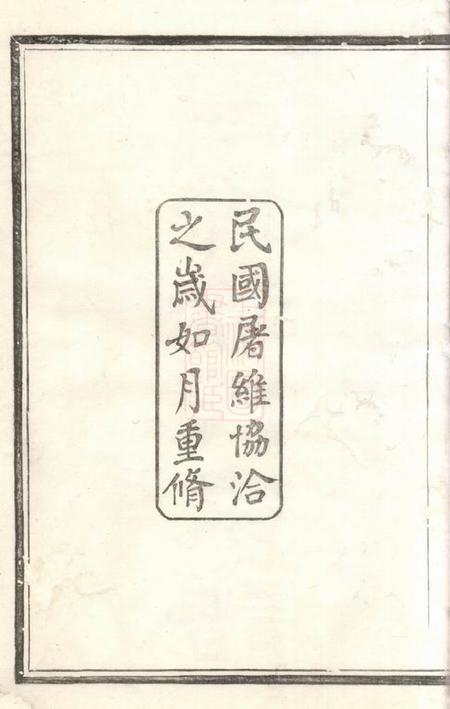 民國屠維協洽
之嵗如月重脩